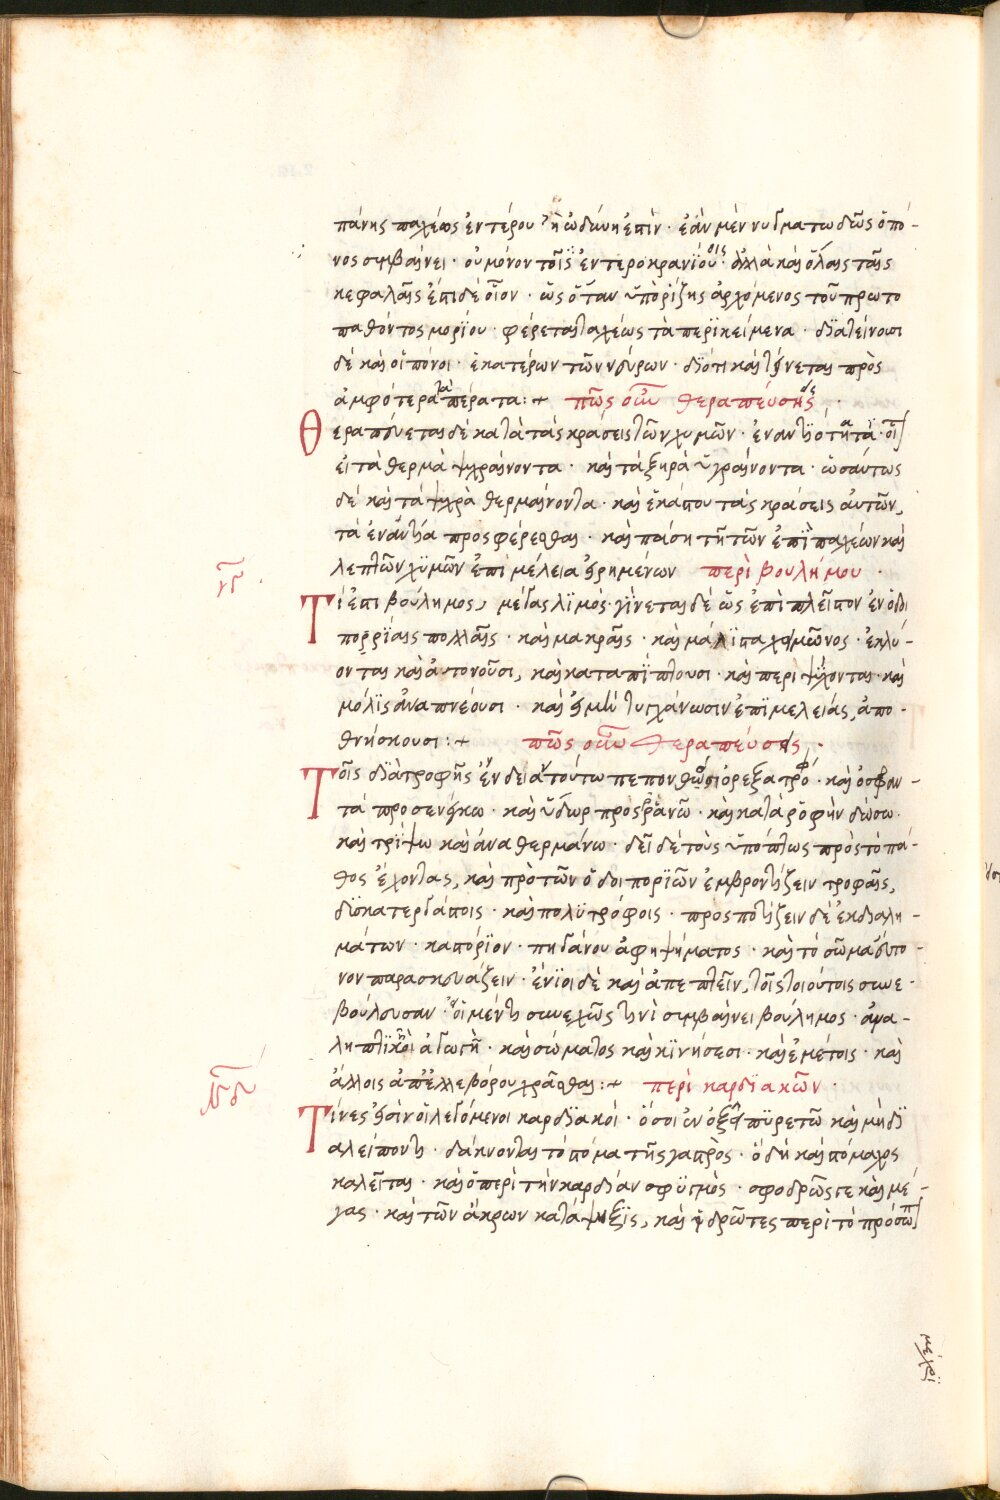 πάνης παχέως ἐντέρου ἡ ὠδύνη ἐστὶν · ἐὰν μὲν νυγματωδῶς ὁ πό-
νος συμβαίνει · οὐ μόνον τοῖς ἐντεροκρανίοις · ἀλλὰ καὶ ὅλαις ταῖς
κεφαλαῖς ἔστι δὲ οἷον · ὡς ὅταν ὑπὸ ρίζης ἀρχόμενος τοῦ πρωτο
παθόντος μορίου · φέρεται ταχέως τὰ περϊκείμενα · διατείνουσι
δὲ καὶ οἱ πόνοι · ἑκατέρων τῶν νεύρων · διότι καὶ τείνεται πρὸς
ἀμφότερα τὰ πέρατα :+ πῶς οὖν θεραπεύσεις ·
Θεραπεύεται δὲ κατὰ τὰς κρασεις τῶν χυμῶν · ἐναντιότητα · οἷ
εἰ τὰ θερμὰ ψυχραίνοντα · καὶ τὰ ξηρὰ ὑγραίνοντα · ὡσαύτως
δὲ καὶ τὰ ψυχρὰ θερμαίνοντα · καὶ ἑκάστου τὰς κράσεις αὐτῶν,
τὰ ἐναντία προσφέρεσθαι · καὶ πάση τῆ τῶν ἐπὶ παχέων καὶ
λεπτῶν χϋμῶν ἐπιμέλεια εἰρημένων περὶ βουλήμου ·
νγ
Τί ἐστι βούλημος, μέγας λϊμός · γίνεται δὲ ὡς ἐπὶ πλεῖστον ἐν ὁδοι
πορρϊαις πολλαῖς · καὶ μακραῖς · καὶ μάλϊστα χειμῶνος · ἐκλύ-
ονται καὶ ἀτονοῦσι, καὶ καταπίπτουσι · καὶ περιψύχονται · καὶ
μόλϊς ἀναπνέουσι · καὶ εἰ μὴ τυγχάνωσιν ἐπϊμελειάς, ἀπο-
θνήσκουσι :+ πῶς οὖν θεραπεύσεις ·
Τοῖς διὰ τροφῆς ἔνδειαν τούτω πεπονθῶσι ὀρεξα τρο · καὶ ὀσφαν-
τά προσενέγκω · καὶ ὕδωρ προσρανῶ · καὶ καταρόφὴν δώσω ·
καὶ τρίψω καὶ ἀναθερμάνω · δεῖ δὲ τοὺς ὑπόπτως πρὸς τὸ πά-
θος ἔχοντας, καὶ πρὸ τῶν ὁδοιπορϊῶν ἐμβροντίζειν τροφαῖς,
δϊσκατεργάστοις · καὶ πολϋτρόφοις · προσποτίζειν δὲ ἐκ διαλη-
μάτων · καστόρϊον · πηγάνου ἀφηψήματος · καὶ τὸ σῶμα εὔτο-
νον παρασκευάζειν · ἔνϊοι δὲ καὶ ἀπεπτεῖν, τοῖς τοιούτοις συνε-
βούλευσαν · οἱ μέντι συνεχῶς τινὶ συμβαίνει βούλημος · ἀνα-
ληπτϊκῆ ἀγωγῆ · καὶ σώματος καὶ κϊνήσεσι · καὶ ἐμέτοις · καὶ
ἄλλοις ἀπ' ἐλλεβόρου χρᾶσθαι :+ περὶ καρδϊακῶν ·
νδ
Τίνες εἰσὶν οἱ λεγόμενοι καρδϊακοί · ὅσοι ἐν ὀξεῖ πϋρετῶ καὶ μὴ δϊ
αλείποντι · δάκνονται τὸ στόμα τῆς γαστρὸς · ὁ δὴ καὶ στόμαχος
καλεῖται · καὶ ὁ περὶ τὴν καρδίαν σφϋγμὸς · σφοδρῶς τε καὶ μέ-
γας · καὶ τῶν ἄκρων κατάψυξϊς, καὶ ἱδρῶτες περὶ τὸ πρόσωπ
μέχρϊ